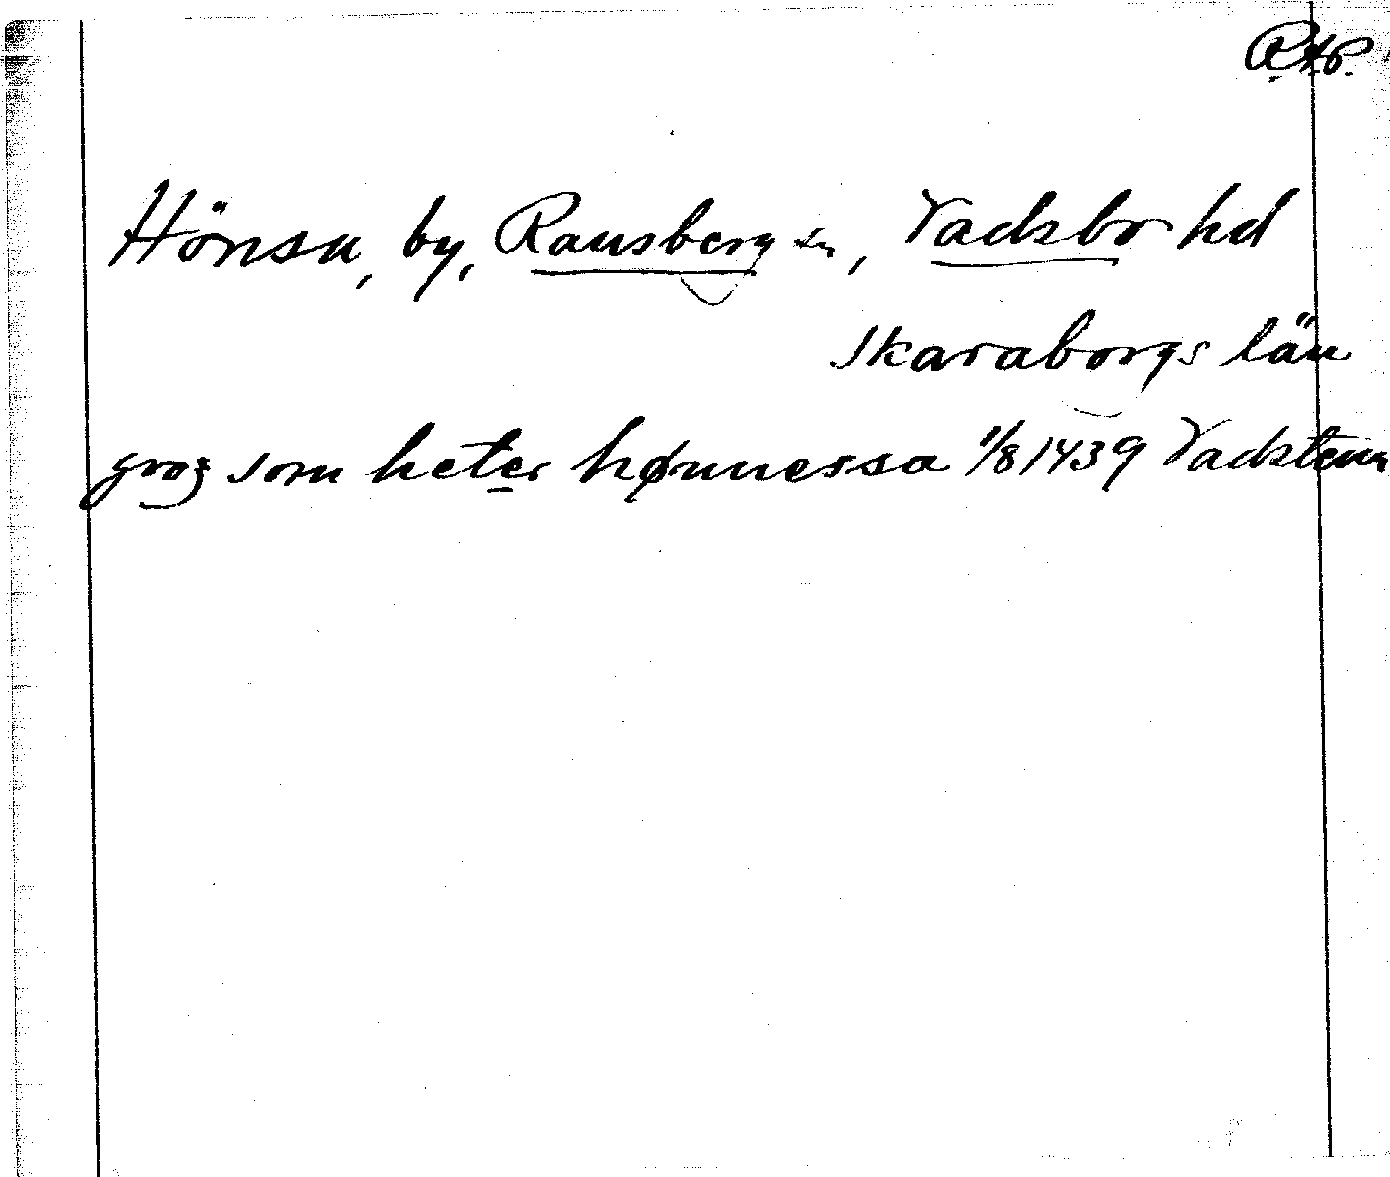 R.A.P.
Hönsa, by, Ransberg sn, Vadsbo hd
Skaraborgs län
som heter hønnessa 1/8 1439 Vadstena